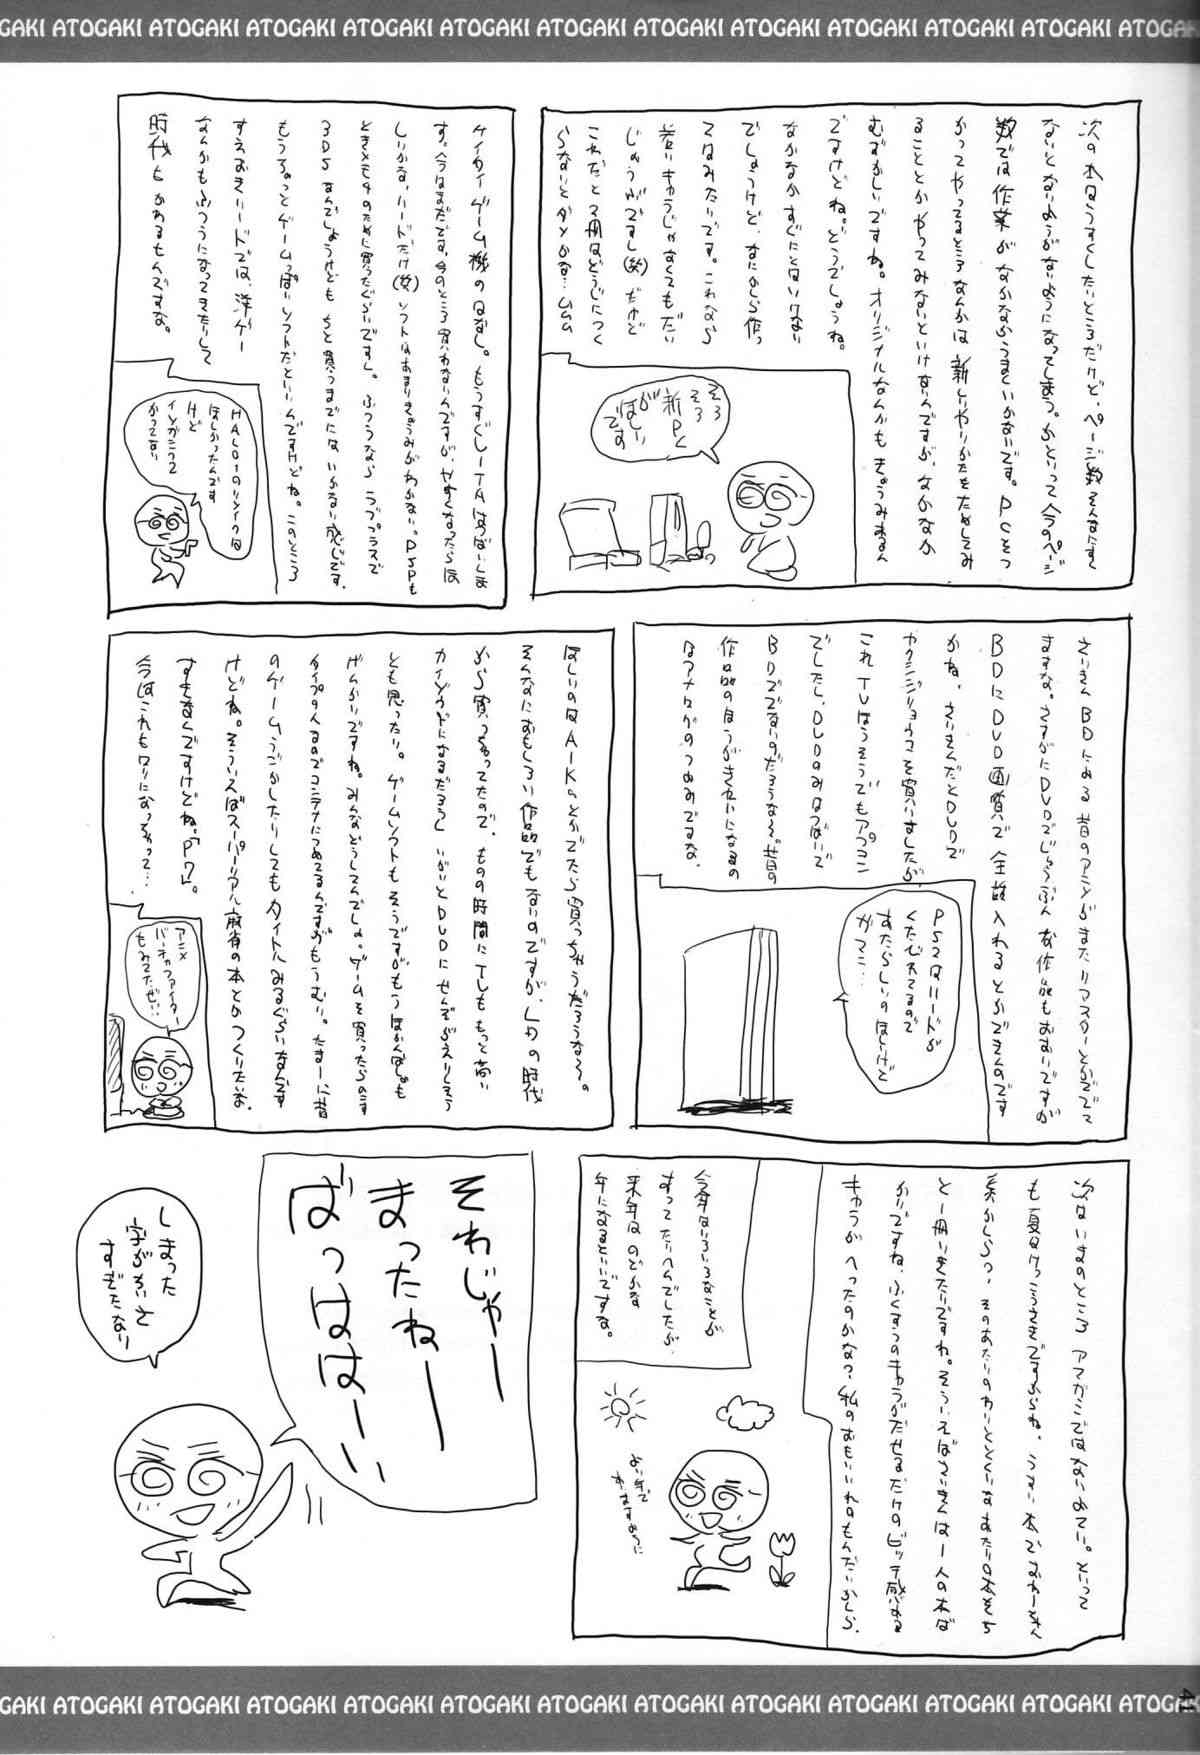 GAKI ATOGAKI ATOGAKI ATOGAKI ATOGAKI ATOGAKI ATOGAKI ATOGAKI ATOGAKI ATOGAKI ATOGAKI ATOGAKI ATOGAKI
次の本はうすくしたいところだけど、ページ数そんなにすく
ないとないようがないようになってしまう。かといって今のページ
数では作業がなかなかうまくいかないです。PCをつ
かってやってるところなんかは新しいやりかたをためしてみ
ることとかやってみないといけないんですが、なかなか
むずかしいですね。オリジナルなんかもきょうみあるん
ですけどね。どうでしょうね。
なかなかすぐにとはいけない
でしょうけど、なにかしら作っ
てはみたいです。これなら
若いキャラじゃなくてもだい
じょうぶですし(笑)だけど
これだと2冊はどうじにつく
らないとダメかな…ムムム
そろ
そろ
新PC
がほしい
です
ケイタイゲーム機のはなし。もうすぐしーTAはつばいしま
す。今はまだです、今のところ買わないんですが、やすくなったらほ
しいかな、ハードだけ(笑)ソフトはあまりきょうみがわかない。PSPも
ときメモ4のために買ったぐらいですし。ふつうならラブプラスで
3DSなんでしょうけどもちと買うまでにはいかない感じです。
もうちょっとゲームっぽいソフトだといいんですけどね。このところ
すえおきハードでは、洋ゲー
なんかもふつうになってきたりして
時代もかわるもんですな。
HALO1のリメイクは
ほしかったんです
けど
かってない
さいきんBDにある昔のアニメがまたリマスターとかでて
ますな。さすがにDVDでじゅうぶんな作品もおおいですが
BDにDVD画質で全話入れるとかできんのです
かね。さいきんだとDVDで
を買いましたが、
これTVほうそうでもアプコン
でしたし、DVDのみはつばいで
BDででないのだろうな〜。昔の
作品のほうがきれいになるの
はアナログのつよみですな。
PS2はハードが
くたびれてるので
あたらしいのほしいけど
ガマン…
ほしいのはAIKaとかでたら買っちゃうだろうな〜。
そんなにおもしろい作品でもないのですが、LDの時代
から買っちゃってたので、
カイゾウドになるだろうし いがいとDVDにせんぞがえりしそう
とも思ったり。ゲームソフトもそうですがもうほかんばしょも
げんかいですね。みんなどうしてんでしょ。ゲームを買ったらのこす
タイプの人なのでコンテナにつめてるんですがもうむり。たまーに昔
のゲームうごかしたりしてもタイトルみるぐらいなんです
けどね。そういえばスーパーリアル麻雀の本とかつくりたいな。
すきなんですけどね、「P7」。
今はこれもワリになっちゃって…
アニメ
バーチャファイター
もみてたぜい…
次はいまのところアマガミではないみてい。といって
も夏はけっこうさきですからね。うすい本でむかーしやん
系かしらっ、そのあたりのわりととくいなあたりの本をち
と一冊いきたいですね。そういえばさいきんは一人の本ば
かりですね、ふくすうのキャラがだせるだけのピッチ感ある
キャラがへったのかな?私のおもいいれのもんだいかしら。
今年はいろいろなことが
すってたいへんでしたが、
来年はのどかな
年になるといいですな。
よい年で
ありますように
それじゃー
まったねー
ばっはは〜い
しまった
字がかいと
すぎたなり
GAKI ATOGAKI ATOGAKI ATOGAKI ATOGAKI ATOGAKI ATOGAKI ATOGAKI ATOGAKI ATOGAKI ATOGAKI ATOGAKI ATOGAKI
41